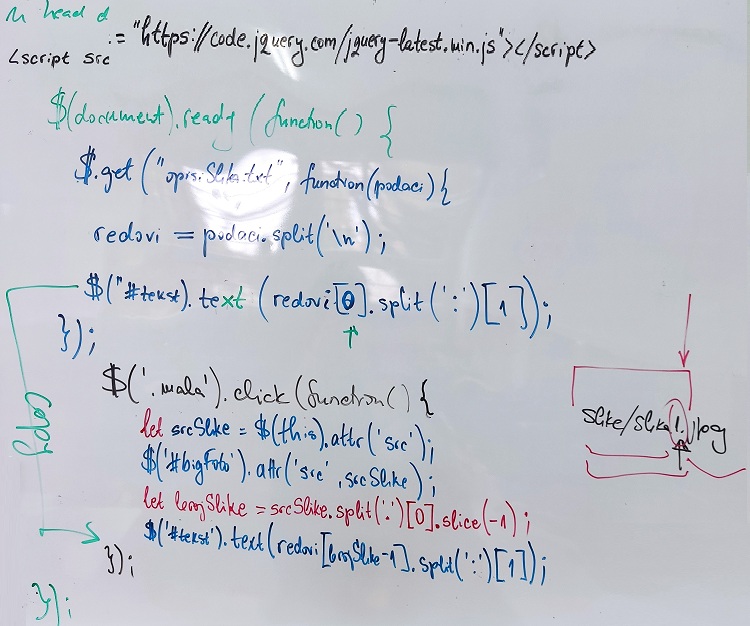 u head d
<script src := "https://code.jquery.com/jquery-latest.min.js"></script>
$(document).ready (function() {
$.get ("opisiSlika.txt", function(podaci){
redovi = podaci.split('\n');
$("#tekst).text (redovi[0].split(':')[1]);
});
$('.mala').click (function() {
let srcSlike = $(this).attr('src');
$('#bigFoto').attr('src', srcSlike);
let brojSlike = srcSlike.split('.')[0].slice(-1);
$('#tekst').text(redovi[brojSlike-1].split(':')[1]);
});
});
copy
slike/slika1.jpg